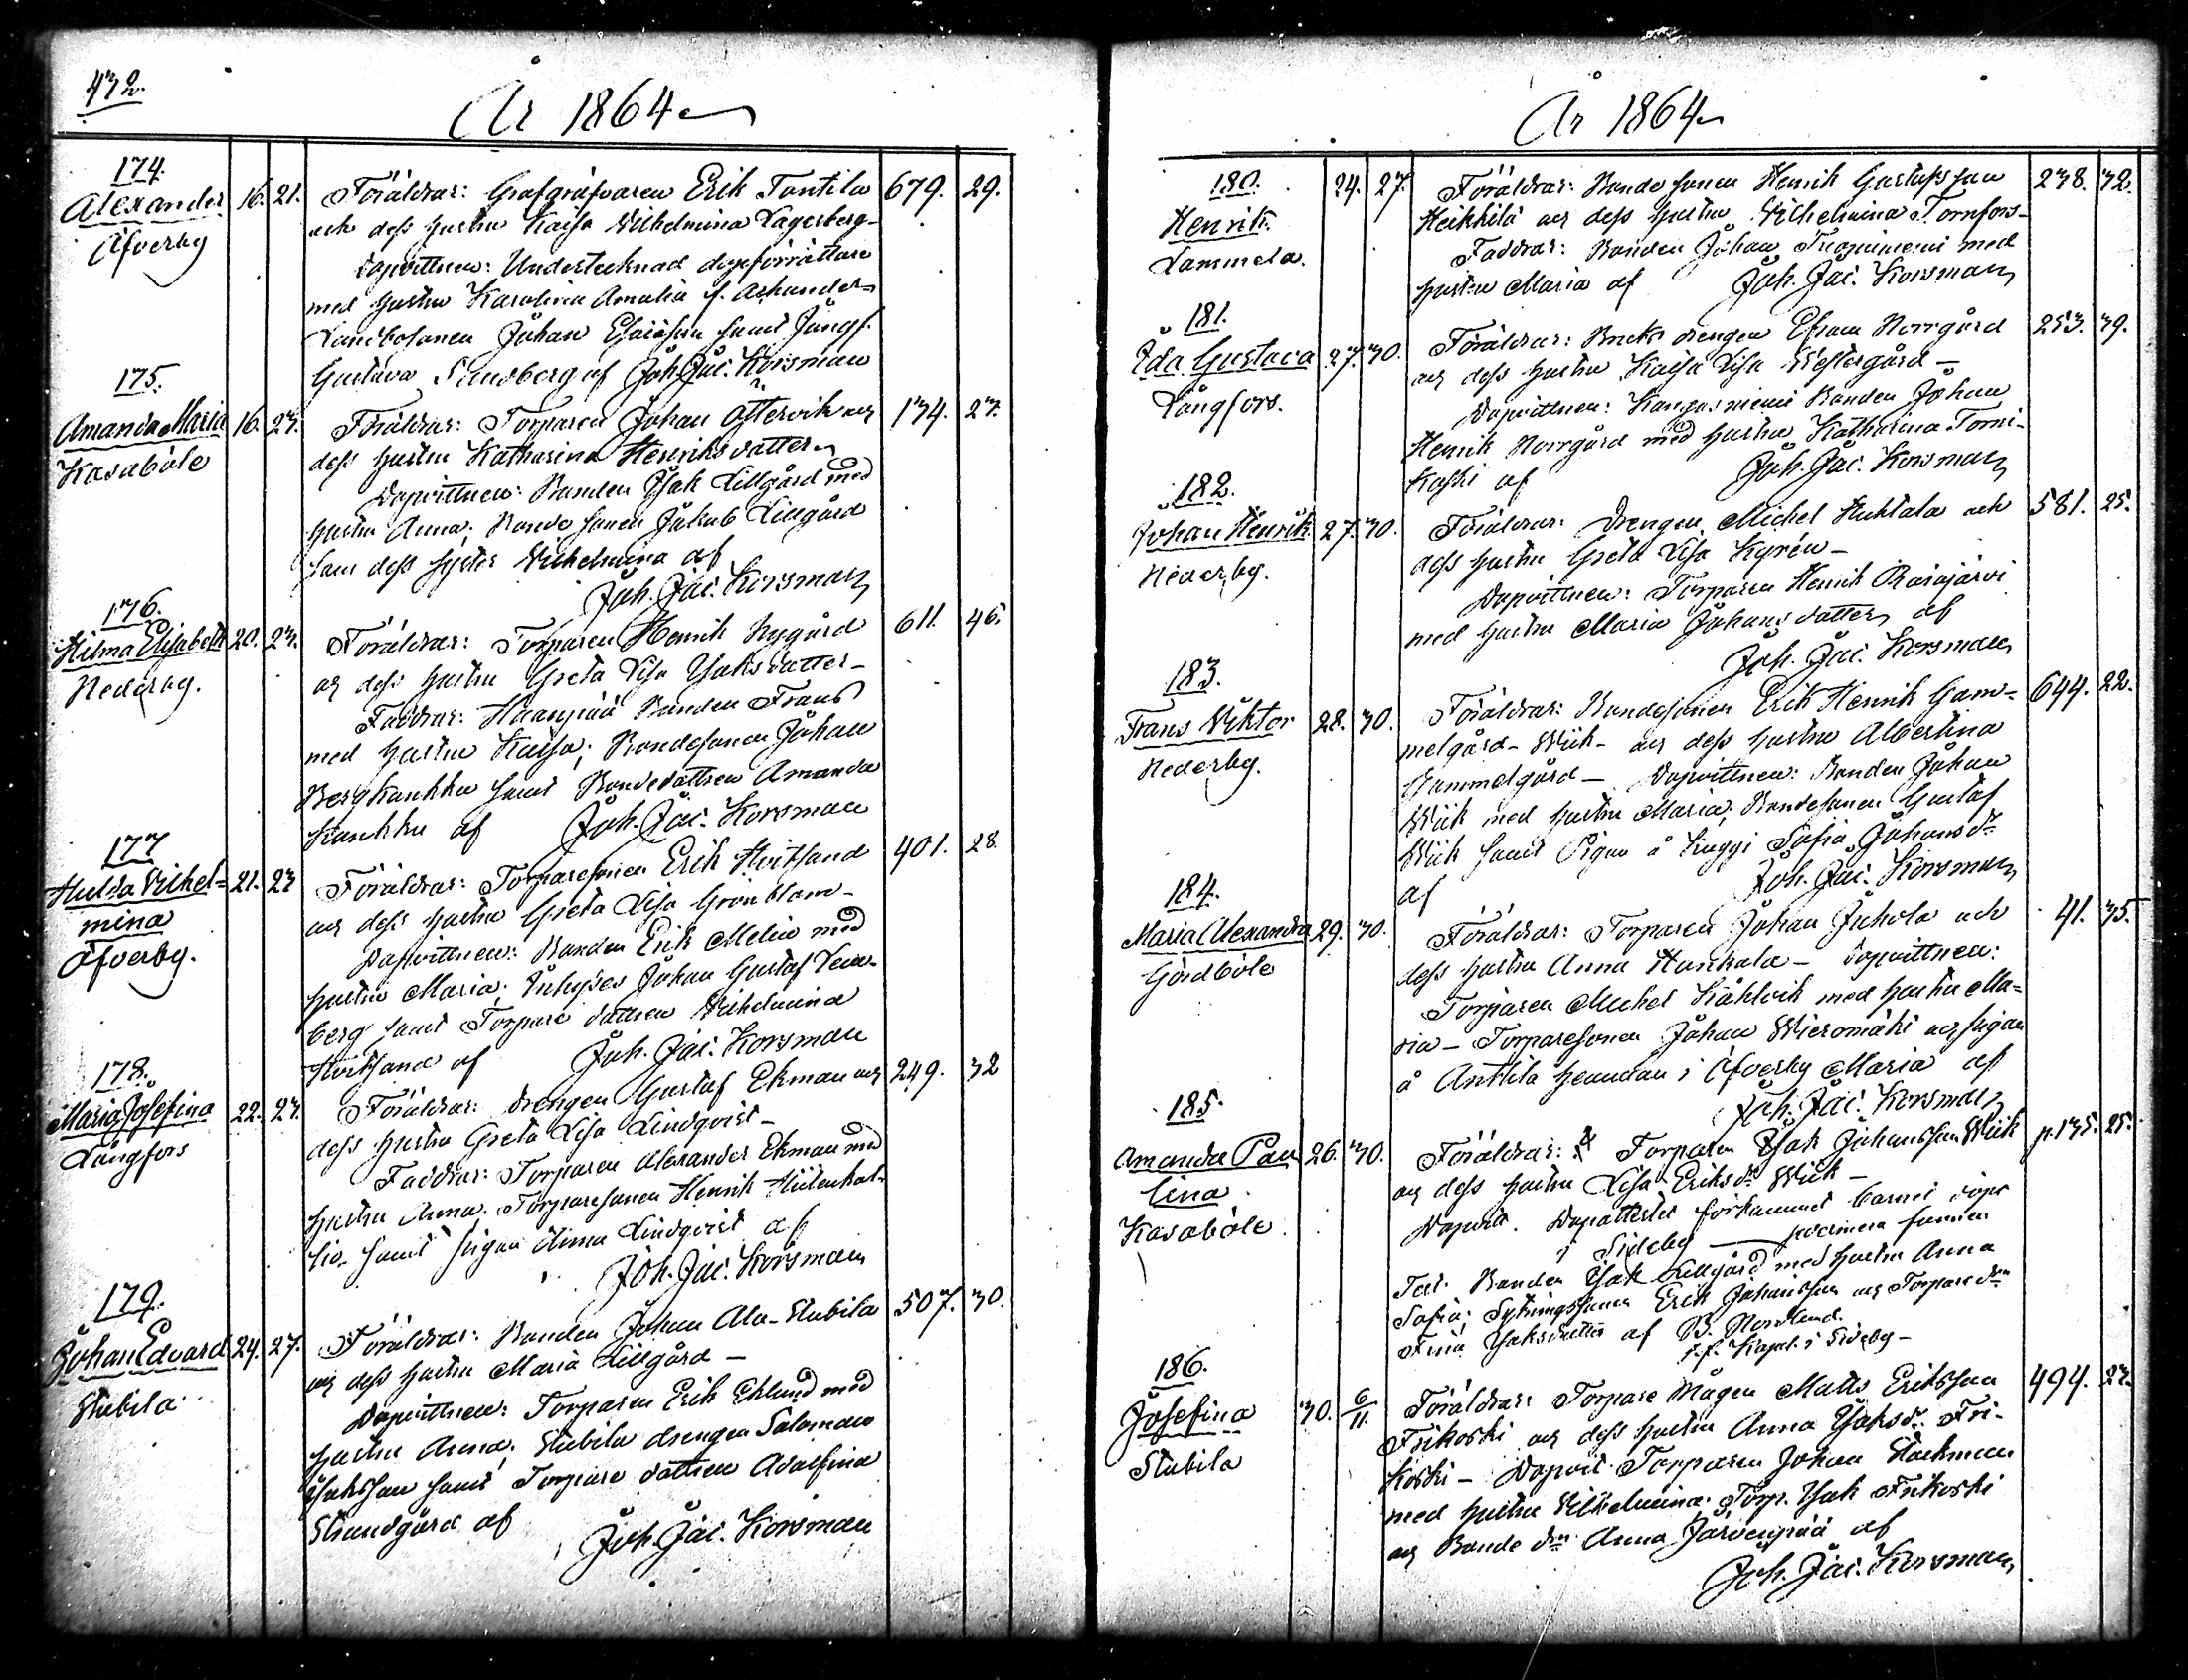 472.
År 1864
174.
Alexander 16. 21. Föräldrar: Grafgräfvaren Erik Tantila 679. 29.
Öfverby
och dess hustru Kaisa Wilhelmina Lagerberg-
Dopvittnen: Undertecknad dopförrättare
med hustru Karolina Amalia f. Ashander-
Landbosonen Johan Esaiasson samt Jungf.
Gustava Sundberg af Joh. Jac. Korsman
175.
Amanda Maria 16. 27. Föräldrar: Torparen Johan Ottervik och 174. 27.
Kasaböle
dess hustru Katharina Henriksdotter
Dopvittnen: Bonden Isak Lillgård med
hustru Anna; Bonde sonen Jakob Lillgård
samt dess syster Wilhelmina af
Joh. Jac. Korsman
176.
Hilma Elisabeth 20. 27. Föräldrar: Torparen Henrik Nygård 611. 46.
Nederby.
och dess hustru Greta Lisa Isaksdotter-
Faddrar: Haanpää Bonden Frans
med hustru Kaisa; Bondesonen Johan
Bergkaukko samt Bondedottren Amanda
Kaukko af Joh. Jac. Korsman
177
Hulda Vilhel= 21. 27 Föräldrar: Torparesonen Erik Hvitsand 401. 28.
mina
Öfverby.
och dess hustru Greta Lisa Grönblom-
Dopvittnen: Bonden Erik Melin med
hustru Maria; Inhyses Johan Gustaf
berg samt Torpare dottren Wilhelmina
Hvitsand af Joh. Jac. Korsman
178.
Maria Josefina 22. 27. Föräldrar: Drengen Gustaf Ekman och 249. 32
Långfors
dess hustru Greta Lisa Lindqvist-
Faddrar: Torparen Alexander Ekman med
hustru Anna; Torparesonen Henrik
samt pigan Anna Lindqvist af
Joh. Jac. Korsman
179.
Johan Edvard 24. 27. Föräldrar: Bonden Johan Ala-Stubila 507. 30.
Stubila
och dess hustru Maria Lillgård -
Dopvittnen: Torparen Erik Eklund med
hustru Anna; Stubila drengen Salomon
Isaksson samt Torpare dottren Adolfina
Strandgård af Joh. Jac. Korsman
År 1864
180. 24. 27. Föräldrar: Bonde sonen Henrik Gustafsson 238. 32.
Henrik.
Lammela.
Heikkilä och dess hustru Wilhelmina Tornfors-
Faddrar: Bonden Johan med
hustru Maria af Joh. Jac. Korsman
181.
Ida Gustava 27. 30. Föräldrar: Bruks drengen Efraim Norrgård 253. 39.
Långfors.
och dess hustru Kaisa Lisa Westergård -
Dopvittnen: Kangasniemi Bonden Johan
Henrik Norrgård med hustru Katharina Torni-
koski af Joh. Jac. Korsman
182.
Johan Henrik 27. 30. Föräldrar: Drengen Michel Huhtala och 581. 25.
Nederby.
dess hustru Greta Lisa Kyrén -
Dopvittnen: Torparen Henrik Rasajärvi
med hustru Maria Johansdotter af
Joh. Jac. Korsman
183.
Frans Viktor 28. 30. Föräldrar: Bondesonen Erik Henrik Gam= 644. 22.
Nederby.
melgård-Wiik- och dess hustru Albertina
Gammelgård - Dopvittnen: Bonden Johan
Wiik med hustru Maria; Bondesonen Gustaf
Wiik samt Pigan å Sofia Johansdr
af Joh. Jac. Korsman
184.
Maria Alexandra 29. 30. Föräldrar: Torparen Johan Juhola och 41. 35.
Gördböle
dess hustru Anna Hankala - Dopvittnen:
Torparen Michel Kåhlvik med hustru Ma=
ria - Torparesonen Johan Wieromäki och pigan
å Anttila hemman i Öfverby Maria af
Joh. Jac. Korsman
185.
Amanda Pau 26. 30. Föräldrar: Torparen Isak Johansson Wiik p. 135. 25.
lina
Kasaböle.
och dess hustru Lisa Eriksdr Wiik -
Dopvit. Dopattestet förkommet barnet döpt
i Sideby
Test. Bonden Isak Lillgård med hustru Anna
Sofia; Sytningssonen Erik Johansson och Torpare drn
Fina Isaksdotter af B. Nordlund.
t.f. Kapel. i Sideby -
186.
Josefina 30. 6/11. Föräldrar: Torpare Mågen Matts Eriksson 494. 27.
Stubila
Frikoski och dess hustru Anna Isaksdr Fri-
koski - Dopvit. Torparen Johan Stackman
med hustru Wilhelmina; Torp. Isak Frikoski
och Bonde drn Anna Järvenpää af
Joh. Jac. Korsman